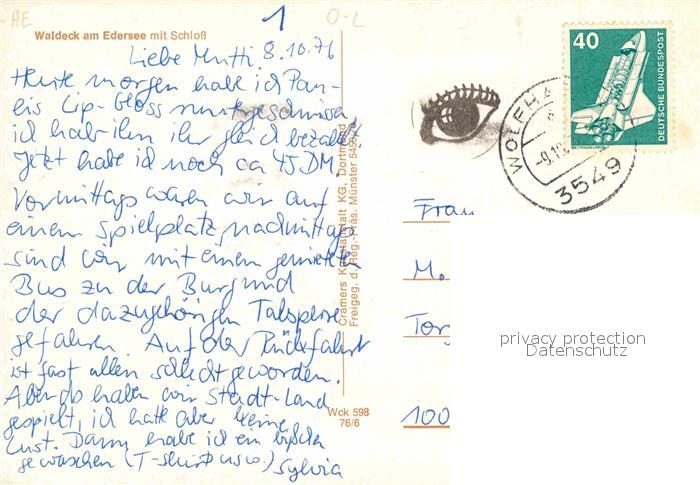 AE
1
O-L
Waldeck am Edersee mit Schloß
Liebe Mutti. 8.10.76
Heute morgen habe ich Pau-
els Lip-Gloss runtergeschmissen,
ich hab ihn ihr gleich bezahlt
Jetzt habe ich noch ca 45 DM.
Vormittags waren wir auf
einem Spielplatz, nachmittags
sind wir mit einem gemieteten
Bus zu der Burg und
der dazugehörigen Talsperre
gefahren. Auf der Rückfahrt
ist fast allen schlecht geworden.
Abends haben wir Stadt-Land
gespielt, ich hatte aber keine
Lust. Dann habe ich ein bißchen
gewaschen (T-shirt usw.) Sylvia
Cramers Kunstanstalt KG, Dortmund
Freigeg. d. Reg.-Präs. Münster
Wck 598
76/6
40
DEUTSCHE BUNDESPOST
WELTRAUMLABOR
WOLFHA
-9.10
3549
Frau
M.
Tor
100
privacy protection
Datenschutz